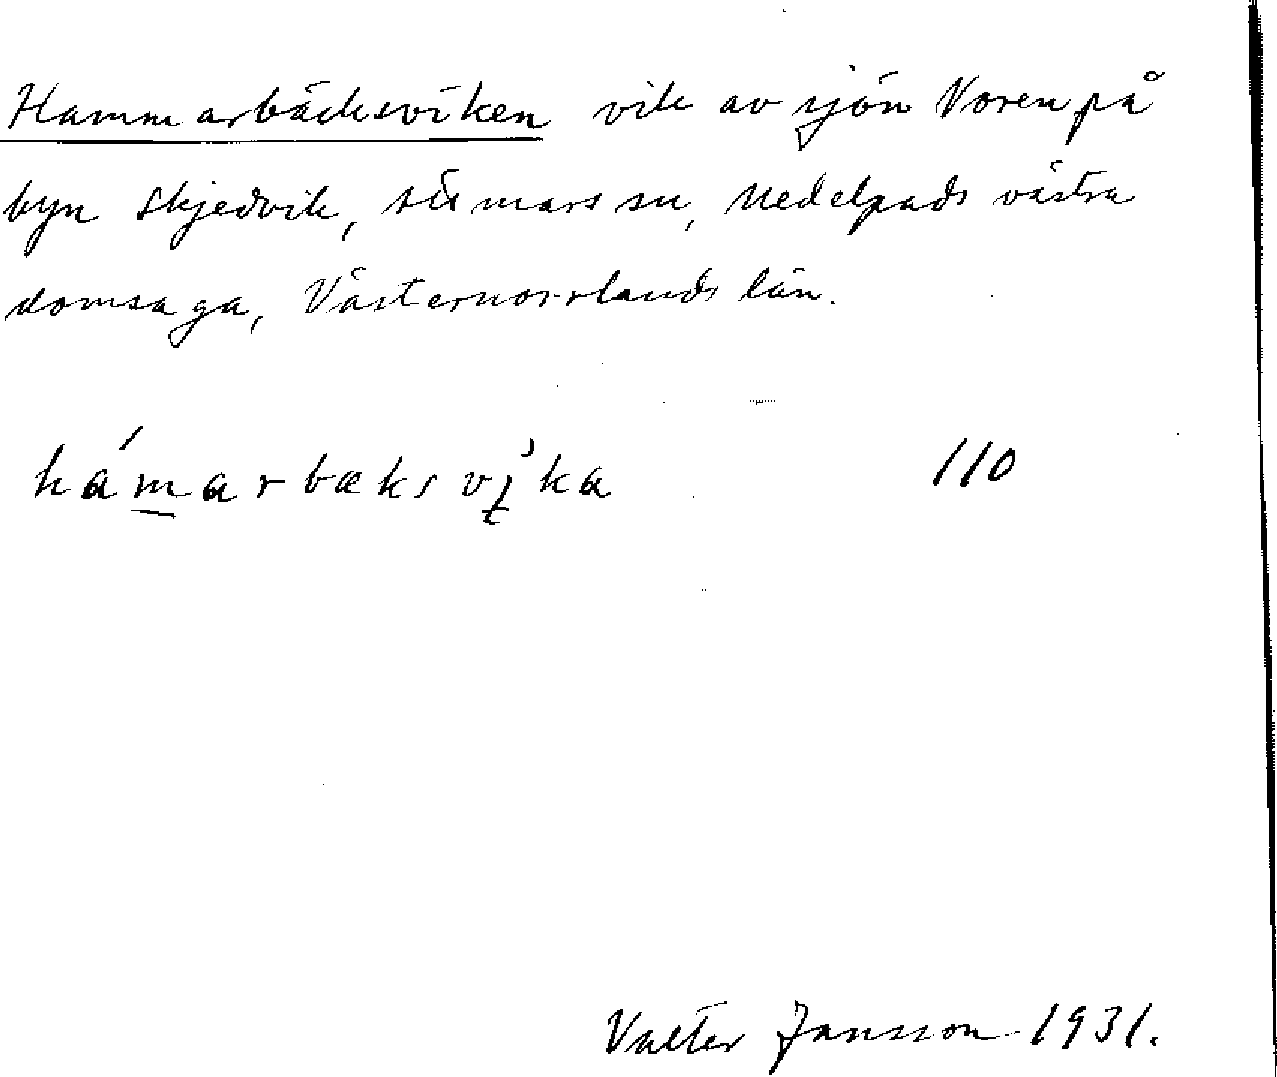 Hammarbäcksviken vik av sjön Voren på
byn Skjedvik, sn, Medelpads västra
domsaga, Västernorrlands län.
hámarbæks vi̱ka 110
Valter Jansson 1931.